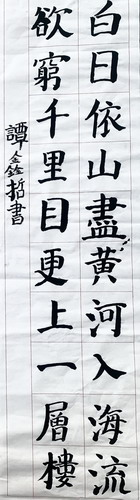 白日依山盡黃河入海流
欲窮千里目更上一層樓
譚金哲書